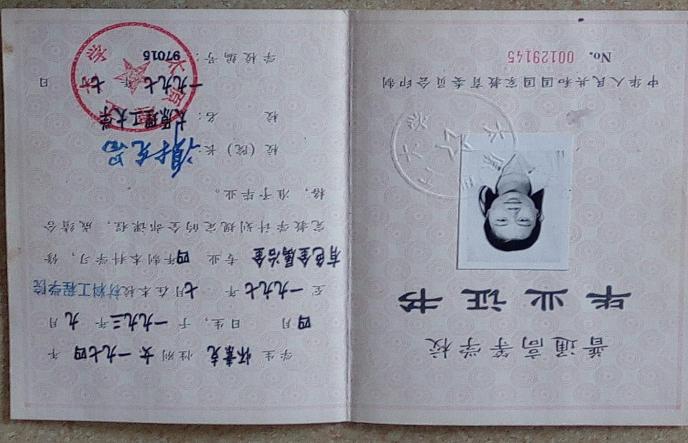 普通高等学校
毕业证书
中华人民共和国国家教育委员会印制
No. 00129145
学生 性别 女 一九七四 年
四月 日生,于 一九九三年 九 月
至 一九九七 年 七月在本校材料工程学院
有色金属冶金 专业 四年制本科学习,修
完教学计划规定的全部课程,成绩合
格,准予毕业。
校(院)长:
校 名:太原理工大学
一九九七 年 七 日
学校编号:97015